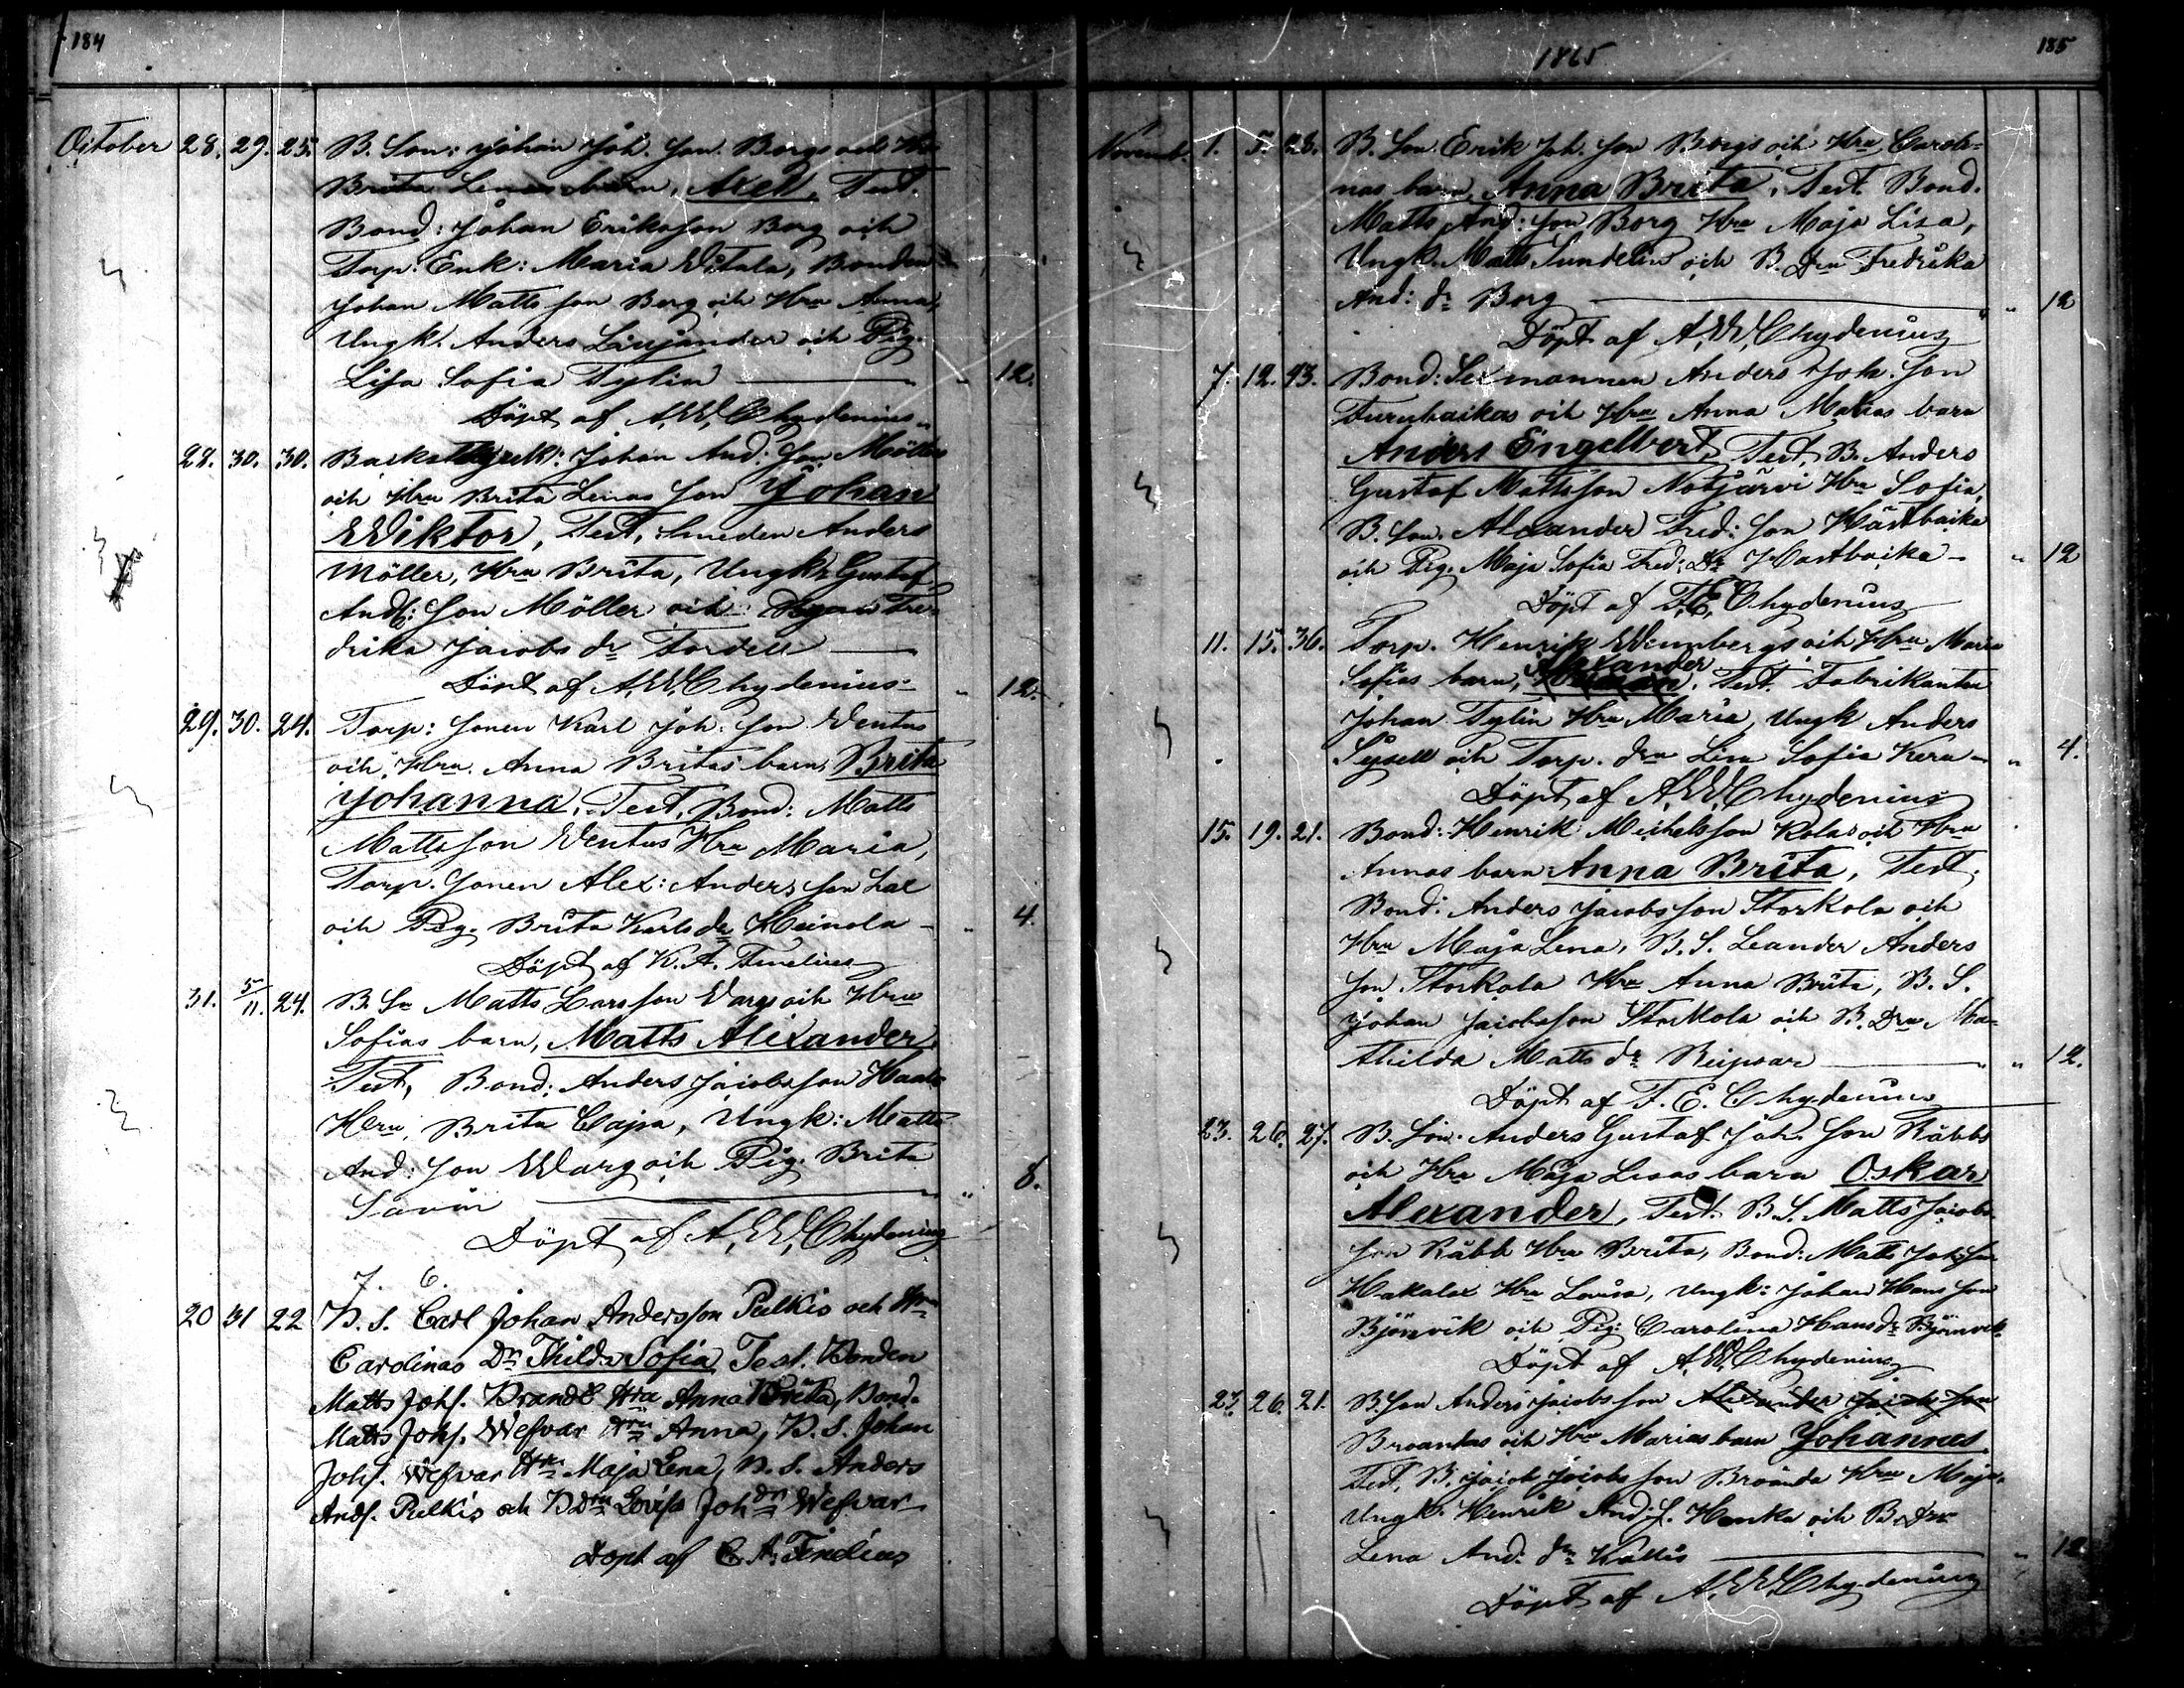 184
October 28. 29. 25. B. Son: Johan Joh. Son Borgs och Hru
Brita Lenas barn, Axel, Test.
Bond: Johan Eriksson Borg och
Torp: Enk: Maria Witala, Bonden
Johan Mattsson Borg och Hru Anna,
Ungk. Anders Liujander och Pig.
Lisa Sofia Tylin — " 12.
Döpt af A. W. Chydenius
28. 30. 30. Johan And: Son Möllers
och Hru Brita Lenas Son Johan
Wiktor, Test, Smeden Anders
Möller, Hru Brita, Ungk: Gustaf
And: Son Möller och Fre-
drika Jacobs dr Fordell —
Döpt af A. W. Chydenius " 12.
29. 30. 24. Torp: Sonen Karl Joh: Son Wentus
och Hru Anna Britas barn, Brita
Johanna, Test, Bond: Matts
Mattsson Wentus Hru Maria,
Torp. Sonen Alex: Anders Son Lax
och Pig. Brita Karls dr Heinola — " 4.
Döpt af K. A. Finelius
31. 5/11. 24. B. Sn Matts Larsson Wargs och Hrus
Sofias barn, Matts Alexander
Test, Bond: Anders Jacobsson Haals
Hru, Brita Cajsa, Ungk: Matts
And: Son Warg och Pig. Brita
Savin — " 8.
Döpt af A. W. Chydenius
7. 6.
20 31 22 B. S. Carl Johan Andersson Pulkis och Hru
Carolinas Dr Thilda Sofia Test. Bonden
Matts Johs. Brandt Hru Anna Brita, Bond.
Matts Johs. Wefvar Hru Anna, B. S. Johan
Johs. Wefvar Hru Maja Lena, B. S. Anders
Ands. Pulkis och B Drn Lovisa Joh Dr Wefvar
Döpt af C. A. Finelius
1865
185
Novemb. 1. 5. 28. B. Son Erik Joh. Son Borgs och Hru Caroli-
nas barn, Anna Brita, Test. Bond.
Matts And: Son Borg Hru Maja Lisa,
Ungk. Matts Sundelin och B. Drn Fredrika
And: dr Borg — " 12
Döpt af A. W. Chydenius
7. 12. 43. Bond: Anders Joh. Son
Furubackas och Hru Anna Marias barn
Anders Engelbert, Test, B. Anders
Gustaf Mattsson Notjärvi Hru Sofia,
B. Son. Alexander Fred: Son Hästbacka
och Pig. Maja Sofia Fred: Dr Hästbacka — " 12
Döpt af F. E. Chydenius
11. 15. 36. Torp. Henrik Wennbergs och Hru Maria
Alexander
Sofias barn, Test. Fabrikanten
Johan Tylin Hru Maria, Ungk Anders
Sysell och Torp. drn Lisa Sofia Kera — " 4.
Döpt af A. W. Chydenius
15. 19. 21. Bond: Henrik Michelsson Kolas och Hru
Annas barn Anna Brita, Test.
Bond: Anders Jacobsson Storkola och
Hru Maja Lena, B. S. Leander Anders
Son Storkola Hru Anna Brita, B. S.
Johan Jacobsson Storkola och B. Drn Ma-
thilda Matts dr Reipvar — " 12.
Döpt af F. E. Chydenius
23. 26. 27. B. Son. Anders Gustaf Joh. Son Råbbs
och Hru Maja Lisas barn Oskar
Alexander, Test. B. S. Matts Jacobs
Son Råbb Hru Brita, Bond: Matts Johsson
Hakalax Hru Lovisa, Ungk: Johan Hans Son
Björnvik och Pig: Carolina Hans dr Björnvik
Döpt af A. W. Chydenius
23. 26. 21. B. Son Anders Jacobsson Alexander Jacobs Son
Broandas och Hru Marias barn Johannes
Test, B. Jacob Jacobsson Broända Hru Maja,
Ungk. Henrik And: S. Honka och B. Drn
Lena And: dr Kattis — " 12
Döpt af A. W. Chydenius